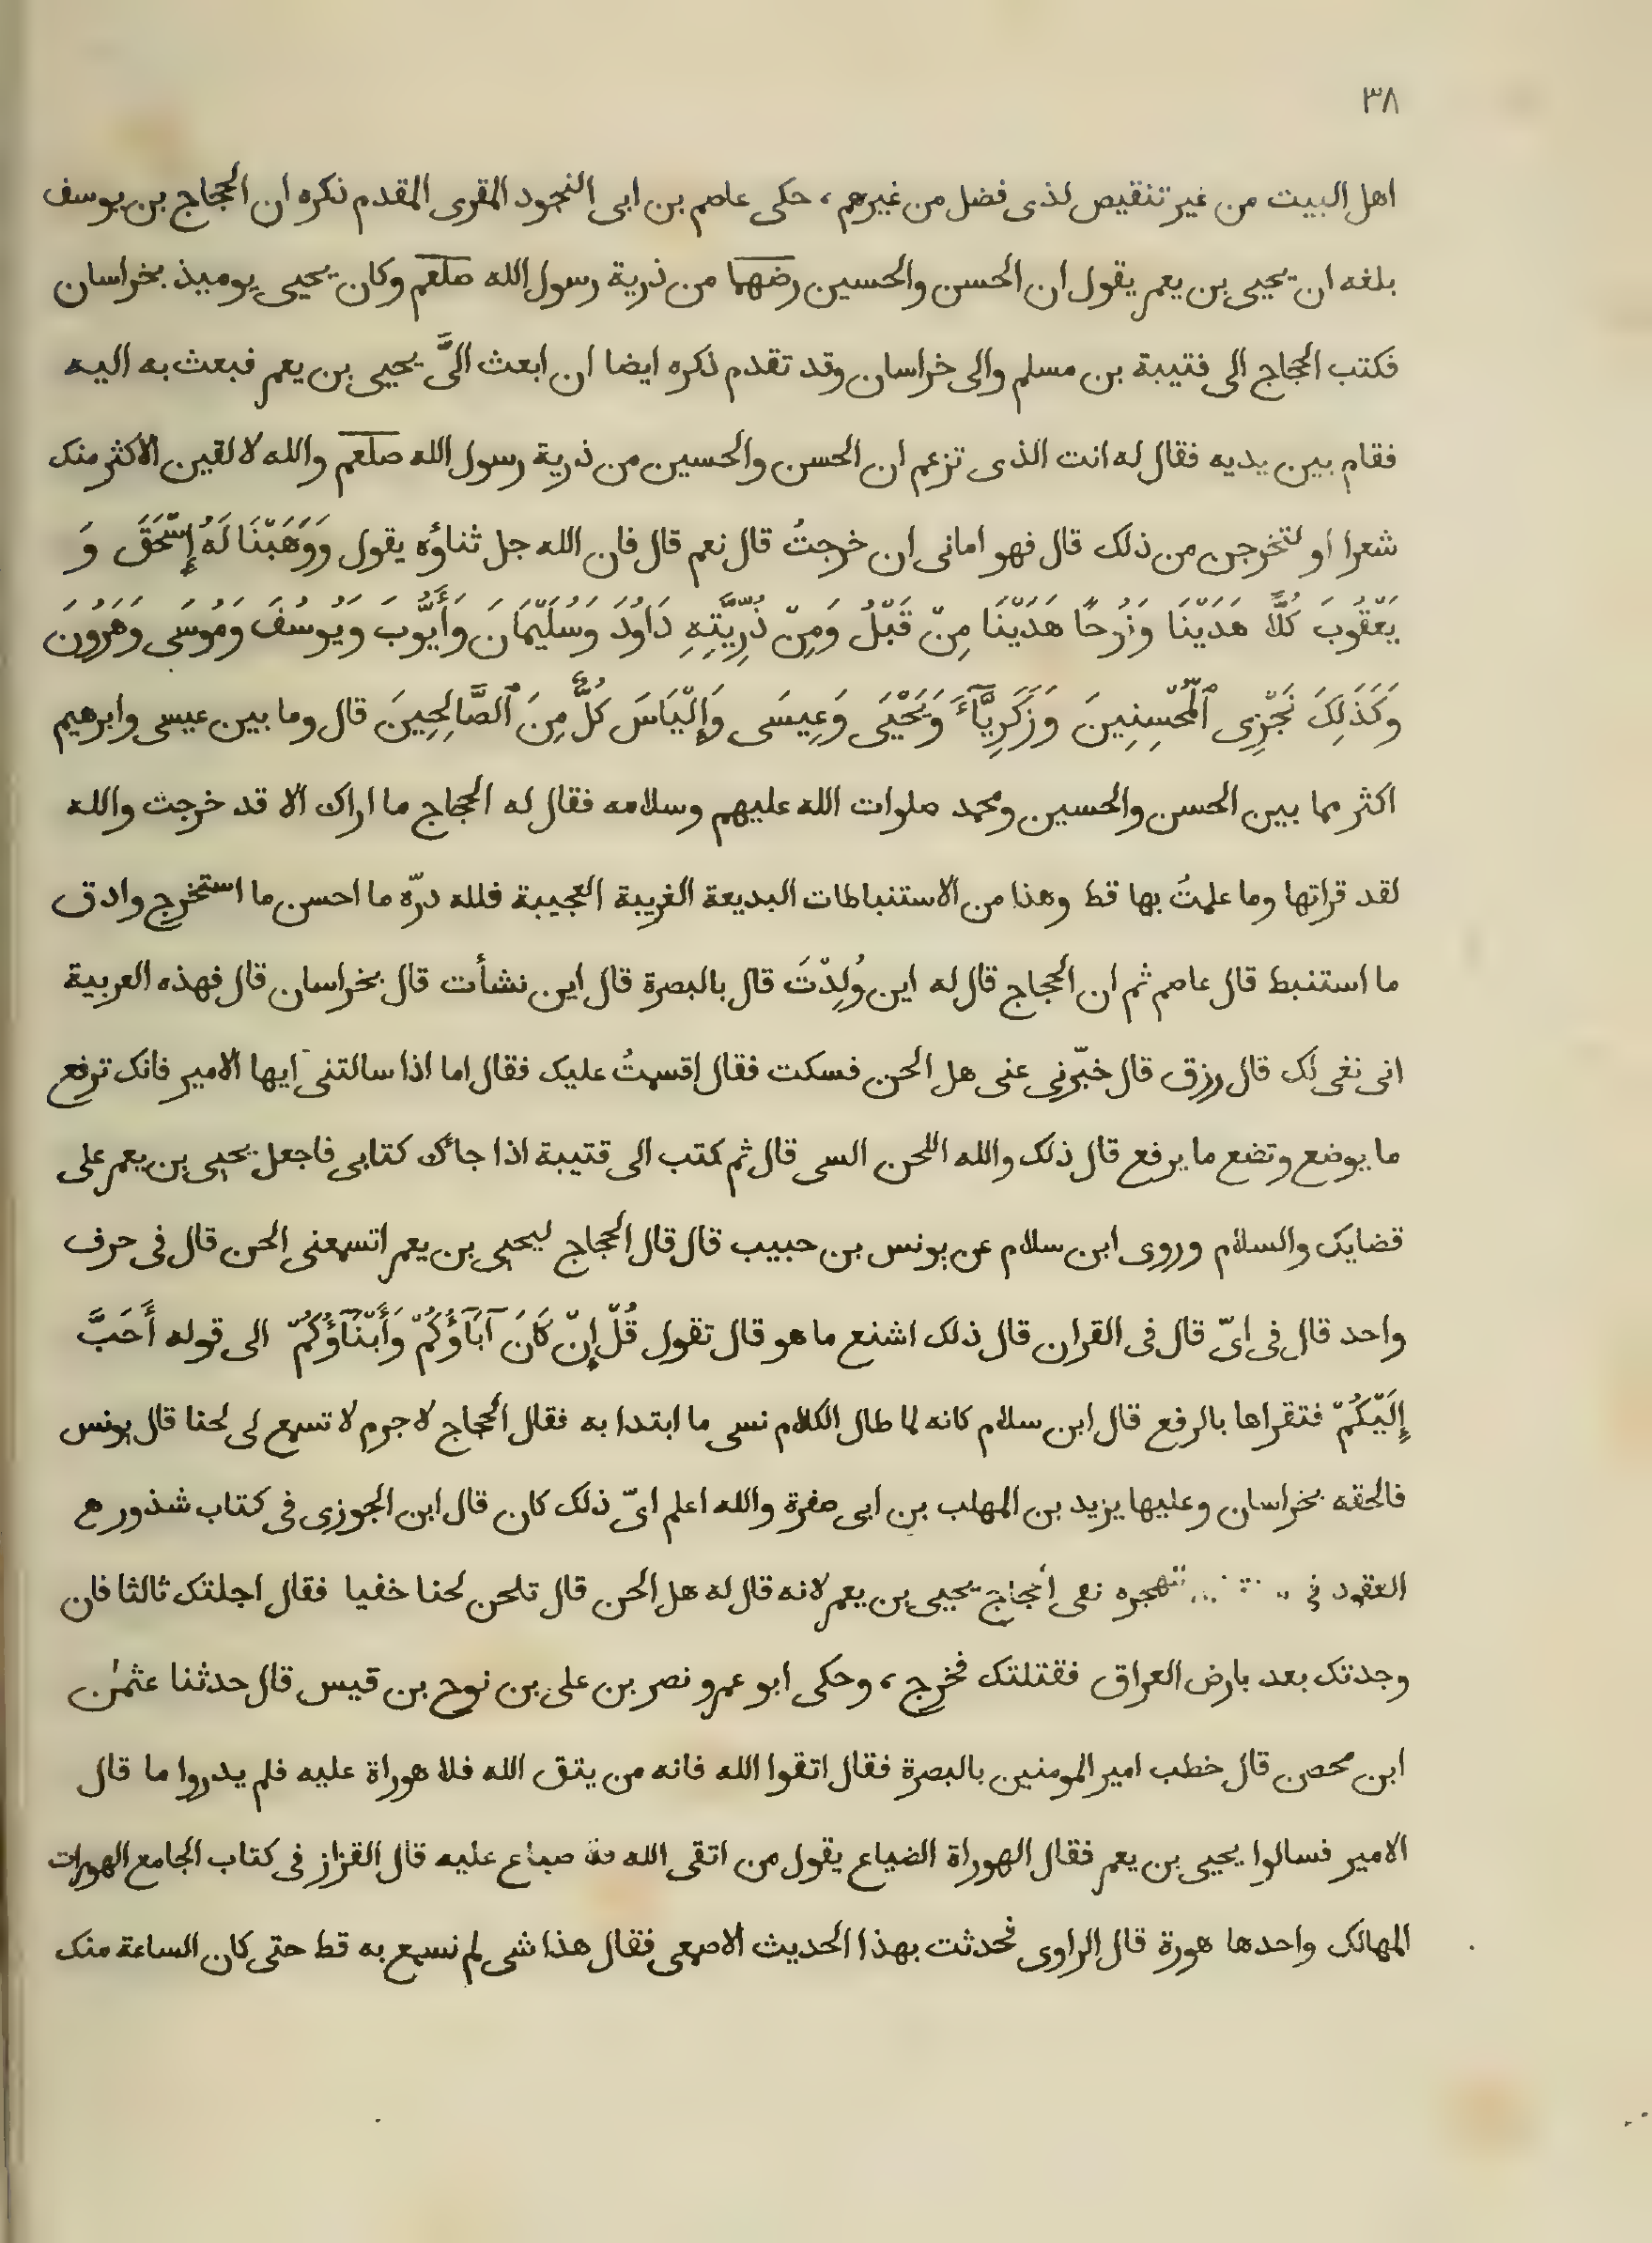 ٣٨
اهل البيت من غير تنقيص لذى فضل من غيرهم، حكى عاصم بن ابى النجود المقرى المقدم ذكره ان الحجاج بن يوسف
بلغه ان يحيى بن يعمر يقول ان الحسن والحسين رضهما من ذرية رسول الله صلعم وكان يحيى يوميذ بخراسان
فكتب الحجاج الى قتيبة بن مسلم والى خراسان وقد تقدم ذكره ايضا ان ابعث الىَّ يحيى بن يعمر فبعث به اليه
فقام بين يديه فقال له انت الذى تزعم ان الحسن والحسين من ذرية رسول الله صلعم والله لالقين الاكثر منك
شعرا او لتخرجن من ذلك قال فهو امانى ان خرجتُ قال نعم قال فان الله جل ثناؤه يقول وَوَهَبْنَا لَهُ إِسْحَقَ وَ
يَعْقُوبَ كُلًّا هَدَيْنَا وَنُوحًا هَدَيْنَا مِنْ قَبْلُ وَمِنْ ذُرِّيَّتِهِ دَاوُدَ وَسُلَيْمَانَ وَأَيُّوبَ وَيُوسُفَ وَمُوسَى وَهَرُونَ
وَكَذَلِكَ نَجْزِى ٱلْمُحْسِنِينَ وَزَكَرِيَّآءَ وَيَحْيَى وَعِيسَى وَإِلْيَاسَ كُلٌّ مِنَ ٱلصَّالِحِينَ قال وما بين عيسى وابرهيم
اكثر مما بين الحسن والحسين ومحمد صلوات الله عليهم وسلامه فقال له الحجاج ما اراك الا قد خرجت والله
لقد قراتها وما علمتُ بها قط وهذا من الاستنباطات البديعة الغريبة العجيبة فلله درّه ما احسن ما استخرج وادق
ما استنبط قال عاصم ثم ان الحجاج قال له اين وُلِدْتَ قال بالبصرة قال اين نشأت قال بخراسان قال فهذه العربية
انى نغى لك قال رزق قال خبّرنى عنى هل الحن فسكت فقال اقسمتُ عليك فقال اما اذا سالتنى ايها الامير فانك ترفع
ما يوضع وتضع ما يرفع قال ذلك والله اللحن السى قال ثم كتب الى قتيبة اذا جاك كتابى فاجعل يحيى بن يعمر على
قضايك والسلام وروى ابن سلام عن يونس بن حبيب قال قال الحجاج ليحيى بن يعمر اتسمعنى الحن قال فى حرف
واحد قال فى اىّ قال فى القران قال ذلك اشنع ما هو قال تقول قُلْ إِنْ كَانَ آبَآؤُكُمْ وَأَبْنَآؤُكُمْ الى قوله أَحَبَّ
إِلَيْكُمْ فتقراها بالرفع قال ابن سلام كانه لما طال الكلام نسى ما ابتدا به فقال الحجاج لا جرم لا تسمع لى لحنا قال يونس
فالحقه بخراسان وعليها يزيد بن المهلب بن ابى صفرة والله اعلم اىّ ذلك كان قال ابن الجوزى فى كتاب شذور ع
العقود فى نفى الحجاج يحيى بن يعمر لانه قال له هل الحن قال تلحن لحنا خفيا فقال اجلتك ثالثا فان
وجدتك بعد بارض العراق فقتلتك فخرج، وحكى ابو عمرو نصر بن على بن نوح بن قيس قال حدثنا عثمٰن
ابن محصن قال خطب امير المومنين بالبصرة فقال اتقوا الله فانه من يتق الله فلا هوراة عليه فلم يدروا ما قال
الامير فسالوا يحيى بن يعمر فقال الهوراة الضياع يقول من اتقى الله ضياع عليه قال القزاز فى كتاب الجامع الهورات
المهالك واحدها هورة قال الراوى فحدثت بهذا الحديث الاصمعى فقال هذا شى لم نسمع به قط حتى كان الساعة منك